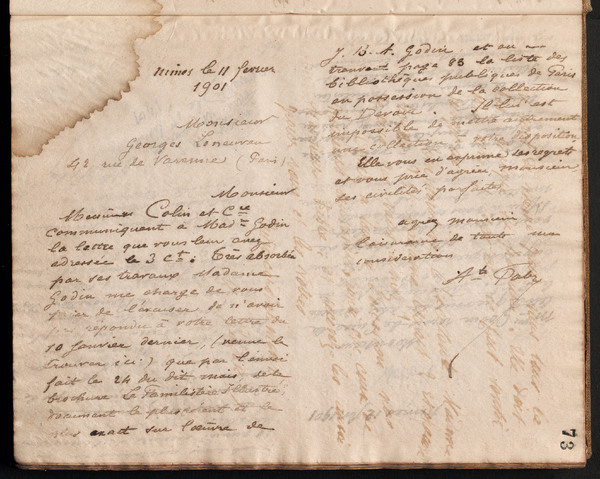 Nimes le 11 fevrier
1901
Monsieur
Georges
43 rue de Varenne (Paris)
Monsieur
Messieurs Colin et Cie
communiquent à Made Godin
la lettre que vous leur avez
adressée le 3 Ct. Très absorbée
par ses travaux Madame
Godin me charge de vous
prier de l'excuser de n'avoir
répondu à votre lettre du
10 janvier dernier, (venue le
trouver ici) que par l'envoi
fait le 24 du dit mois de la
brochure Le Familistère Illustré,
document le plus récent et le
plus exact sur l'œuvre de
J. B. A. Godin et où
trouvent page 83 la liste des
bibliothèques publiques de Paris
en possession de la collection
du Devoir. Il lui est
impossible de mettre autrement
une collection à votre disposition
Elle vous en exprime ses regrets
et vous prie d'agréer monsieur
ses civilités parfaites
agréez monsieur
l'assurance de toute ma
considération
Ate Fabre
73